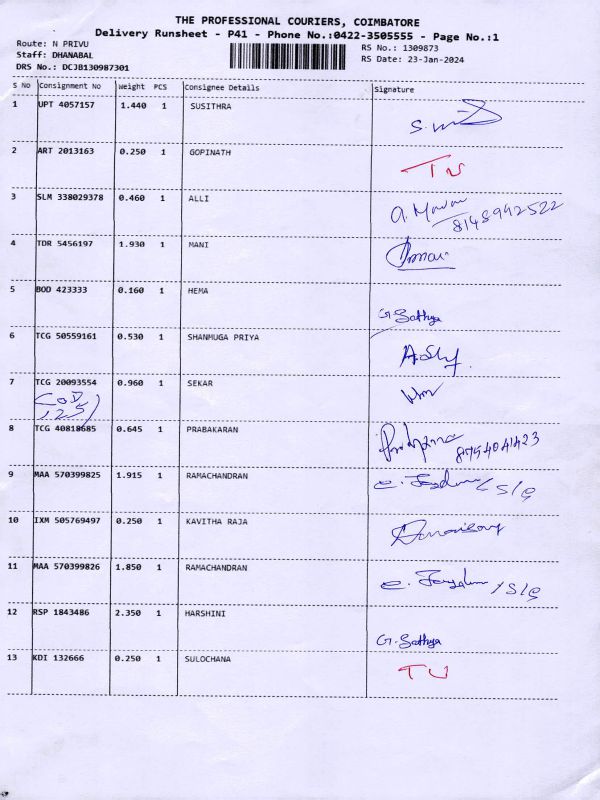 THE PROFESSIONAL COURIERS, COIMBATORE
Delivery Runsheet - P41 - Phone No.:0422-3505555 - Page No.:1
Route: N PRIVU
RS No.: 1309873
Staff: DHANABAL
RS Date: 23-Jan-2024
DRS No.: DCJB130987301
S No Consignment No Weight PCS Consignee Details Signature
1 UPT 4057157 1.440 1 SUSITHRA
2 ART 2013163 0.250 1 GOPINATH
3 SLM 338029378 0.460 1 ALLI
8148942522
4 TDR 5456197 1.930 1 MANI
5 BOD 423333 0.160 1 HEMA
G. Sathya
6 TCG 50559161 0.530 1 SHANMUGA PRIYA
7 TCG 20093554 0.960 1 SEKAR
COD
8 TCG 40818685 0.645 1 PRABAKARAN
9 MAA 570399825 1.915 1 RAMACHANDRAN
10 IXM 505769497 0.250 1 KAVITHA RAJA
11 MAA 570399826 1.850 1 RAMACHANDRAN
12 RSP 1843486 2.350 1 HARSHINI
G. Sathya
13 KDI 132666 0.250 1 SULOCHANA